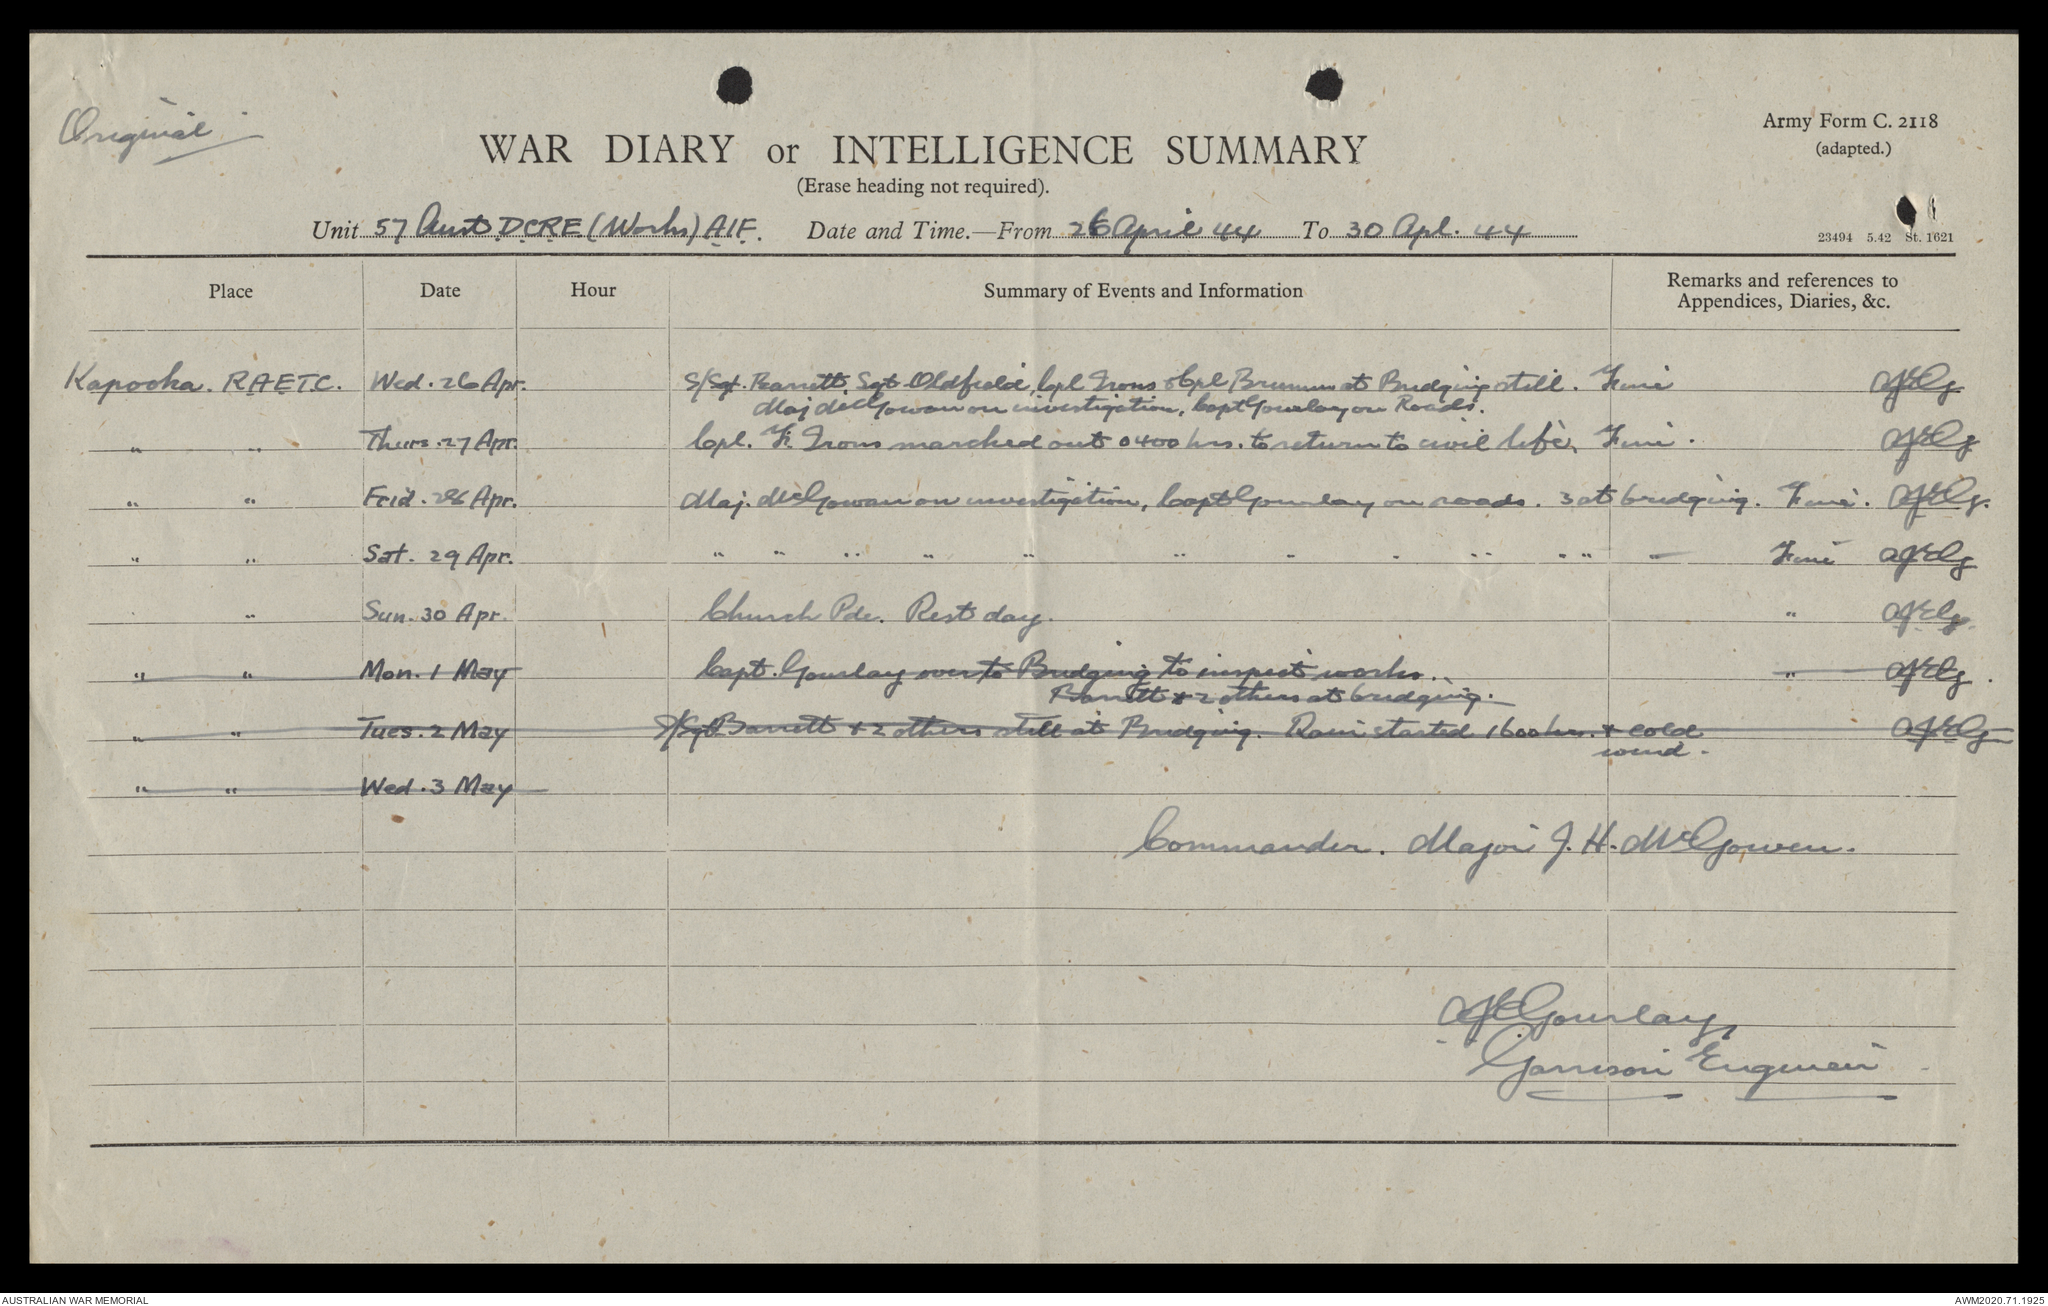 Original
Army Form C. 2118
(adapted.)
WAR DIARY or INTELLIGENCE SUMMARY
(Erase heading not required).
Unit 57 Aust DCRE (Works) AIF. Date and Time.—From 26 April 44 To 30 Apl. 44
23494 5.42 St. 1621
Place Date Hour Summary of Events and Information Remarks and references to
Appendices, Diaries, &c.
Kapooka. RAETC. Wed. 26 Apr. S/Sgt. Barrett, Sgt Oldfield, Cpl Irons & Cpl at Bridging still. Fine
Maj McGowan on investigation, Capt Gourlay on Roads.
" " Thurs. 27 Apr. Cpl. F. Irons marched out 0400 hrs. to return to civil life. Fine.
" " Frid. 28 Apr. Maj. McGowan on investigation, Capt Gourlay on roads. 3 at bridging. Fine.
" " Sat. 29 Apr. " " " " " " " " " " " — Fine
" Sun. 30 Apr. Church Pde. Rest day. "
" " Mon. 1 May Capt. Gourlay over to Bridging to inspect works. "
Barrett & 2 others at bridging.
" " Tues. 2 May S/Sgt Barrett & 2 others still at Bridging. Rain started 1600 hrs. & cold
wind.
" " Wed. 3 May
Commander. Major J. H. McGowen.
Gourlay
Garrison Engineer
AUSTRALIAN WAR MEMORIAL AWM2020.71.1925